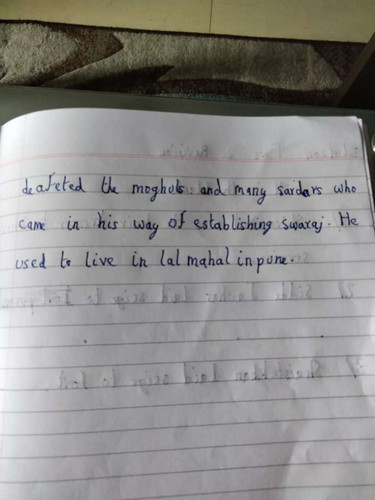 deafeted the moghuls and many sardars who
came in his way of establishing swaraj. He
used to live in lal mahal in pune.